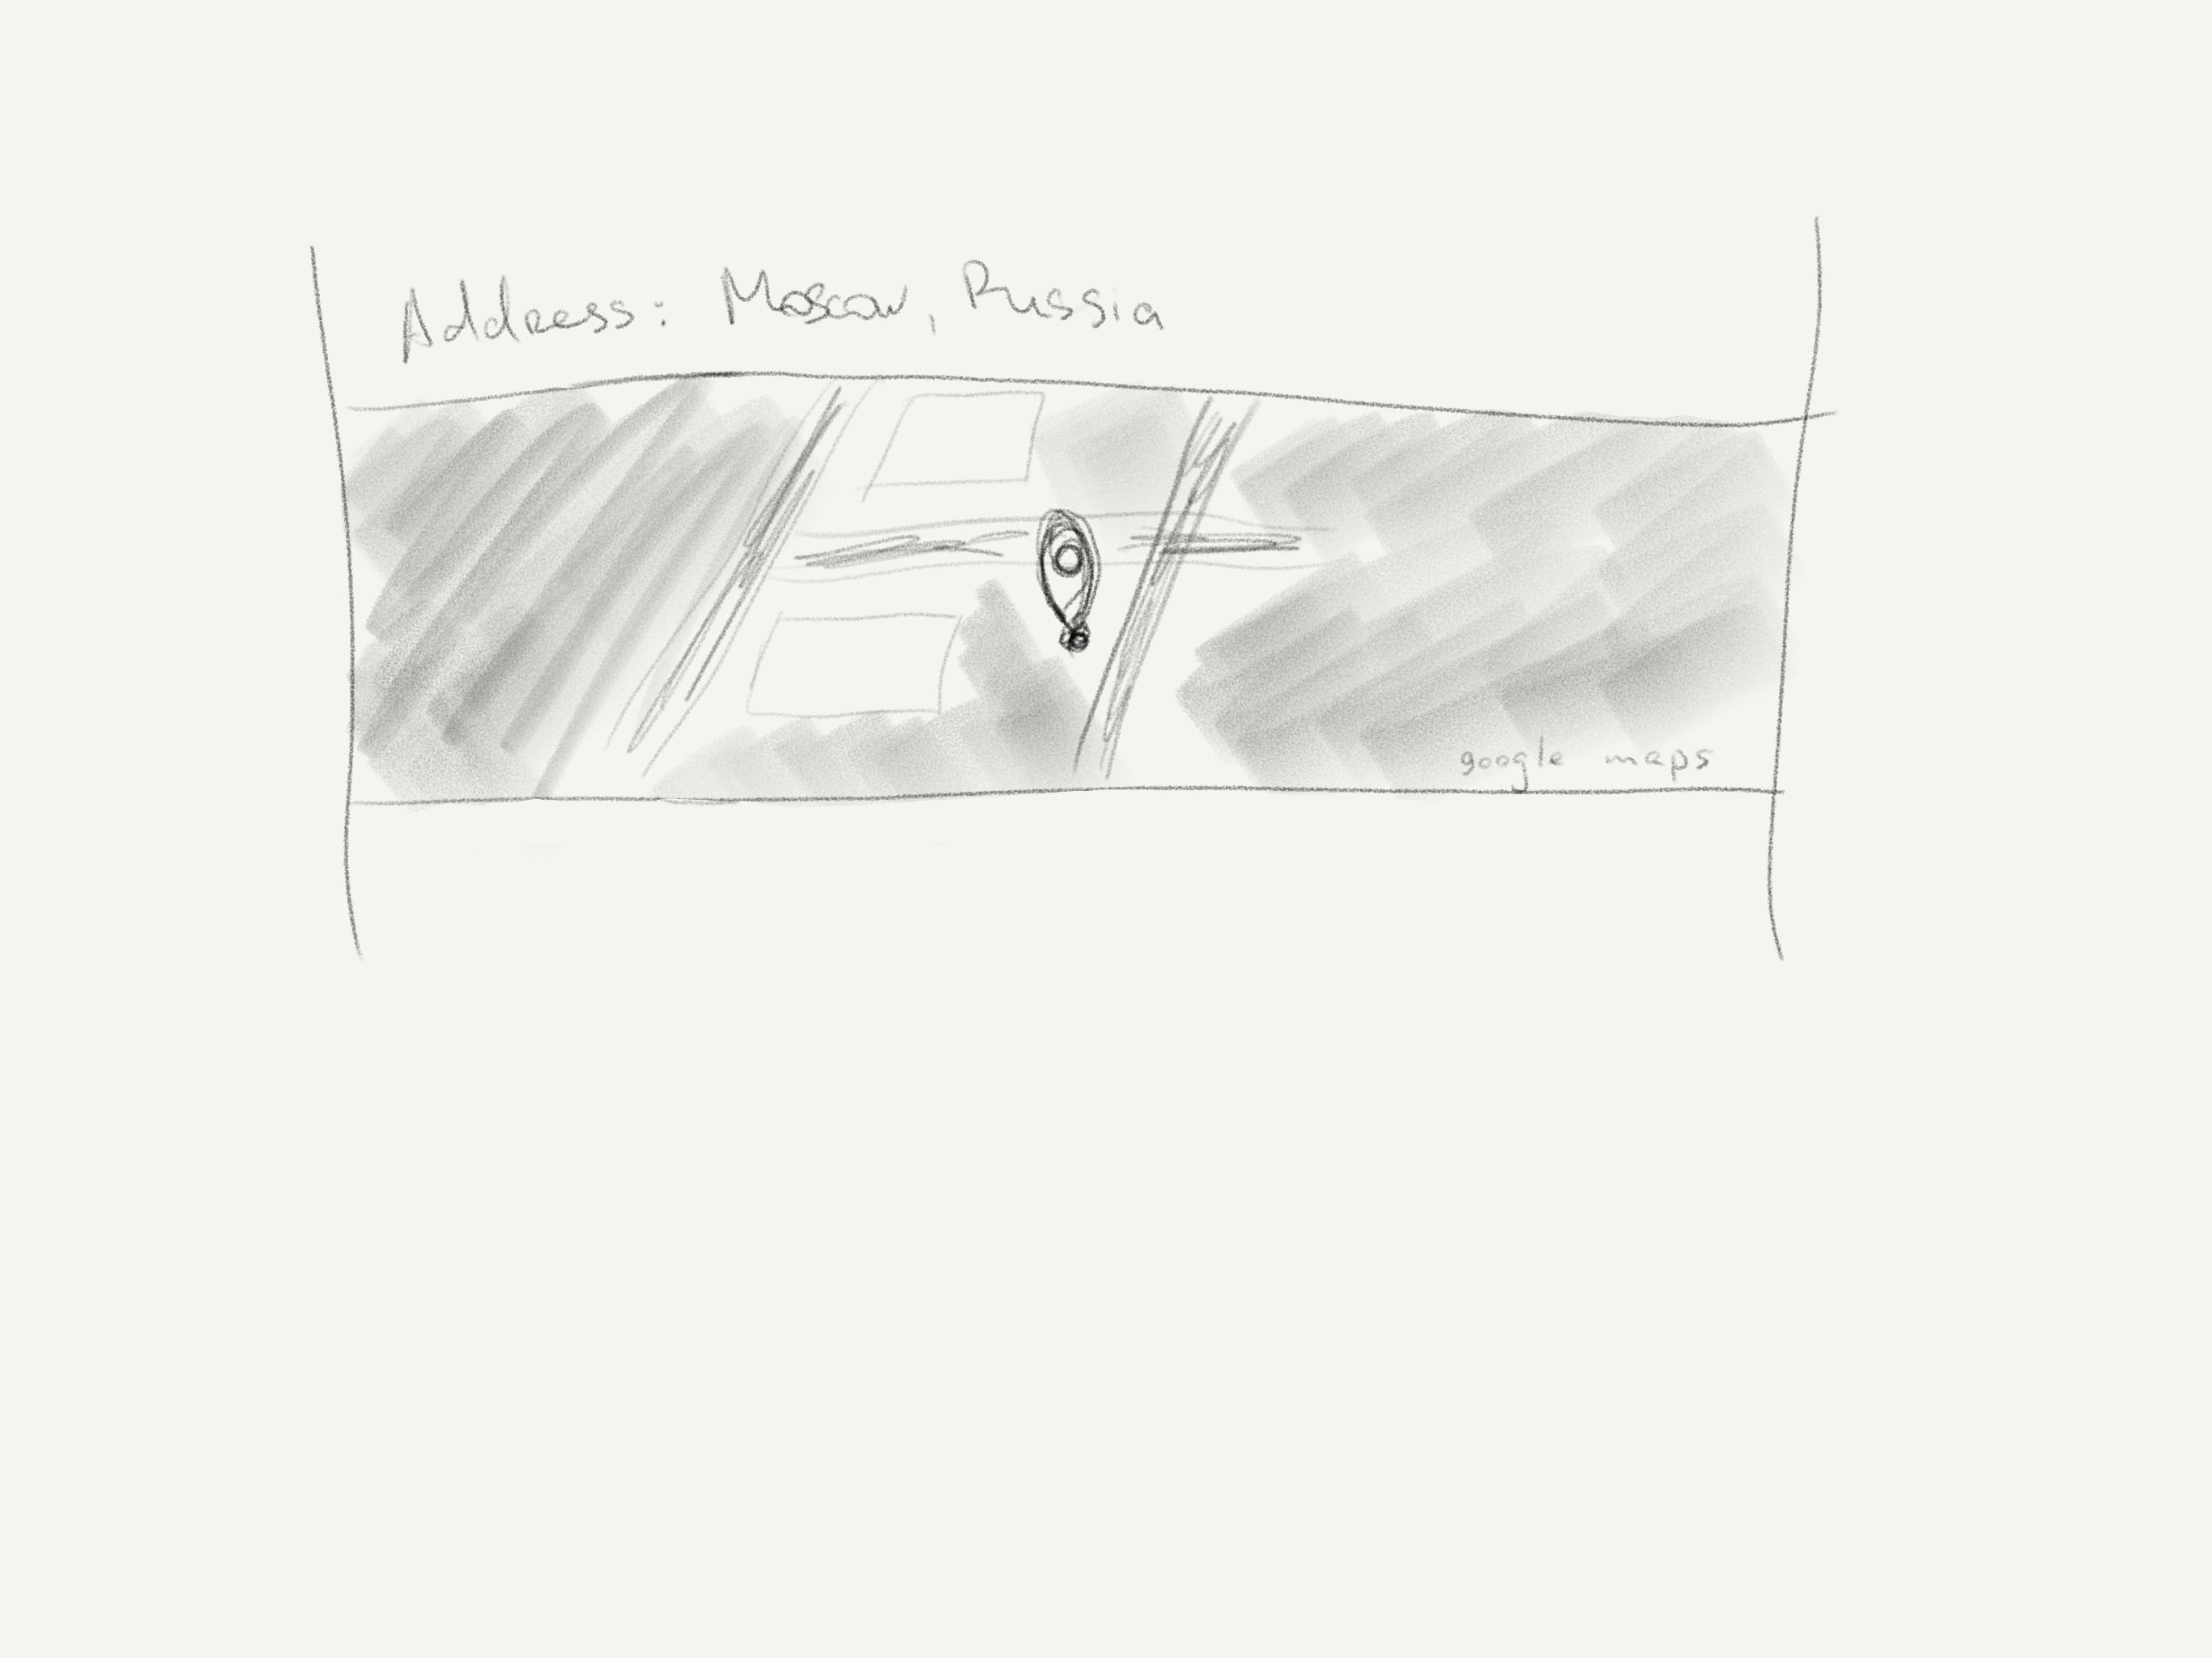 Address: Moscow, Russia
google maps